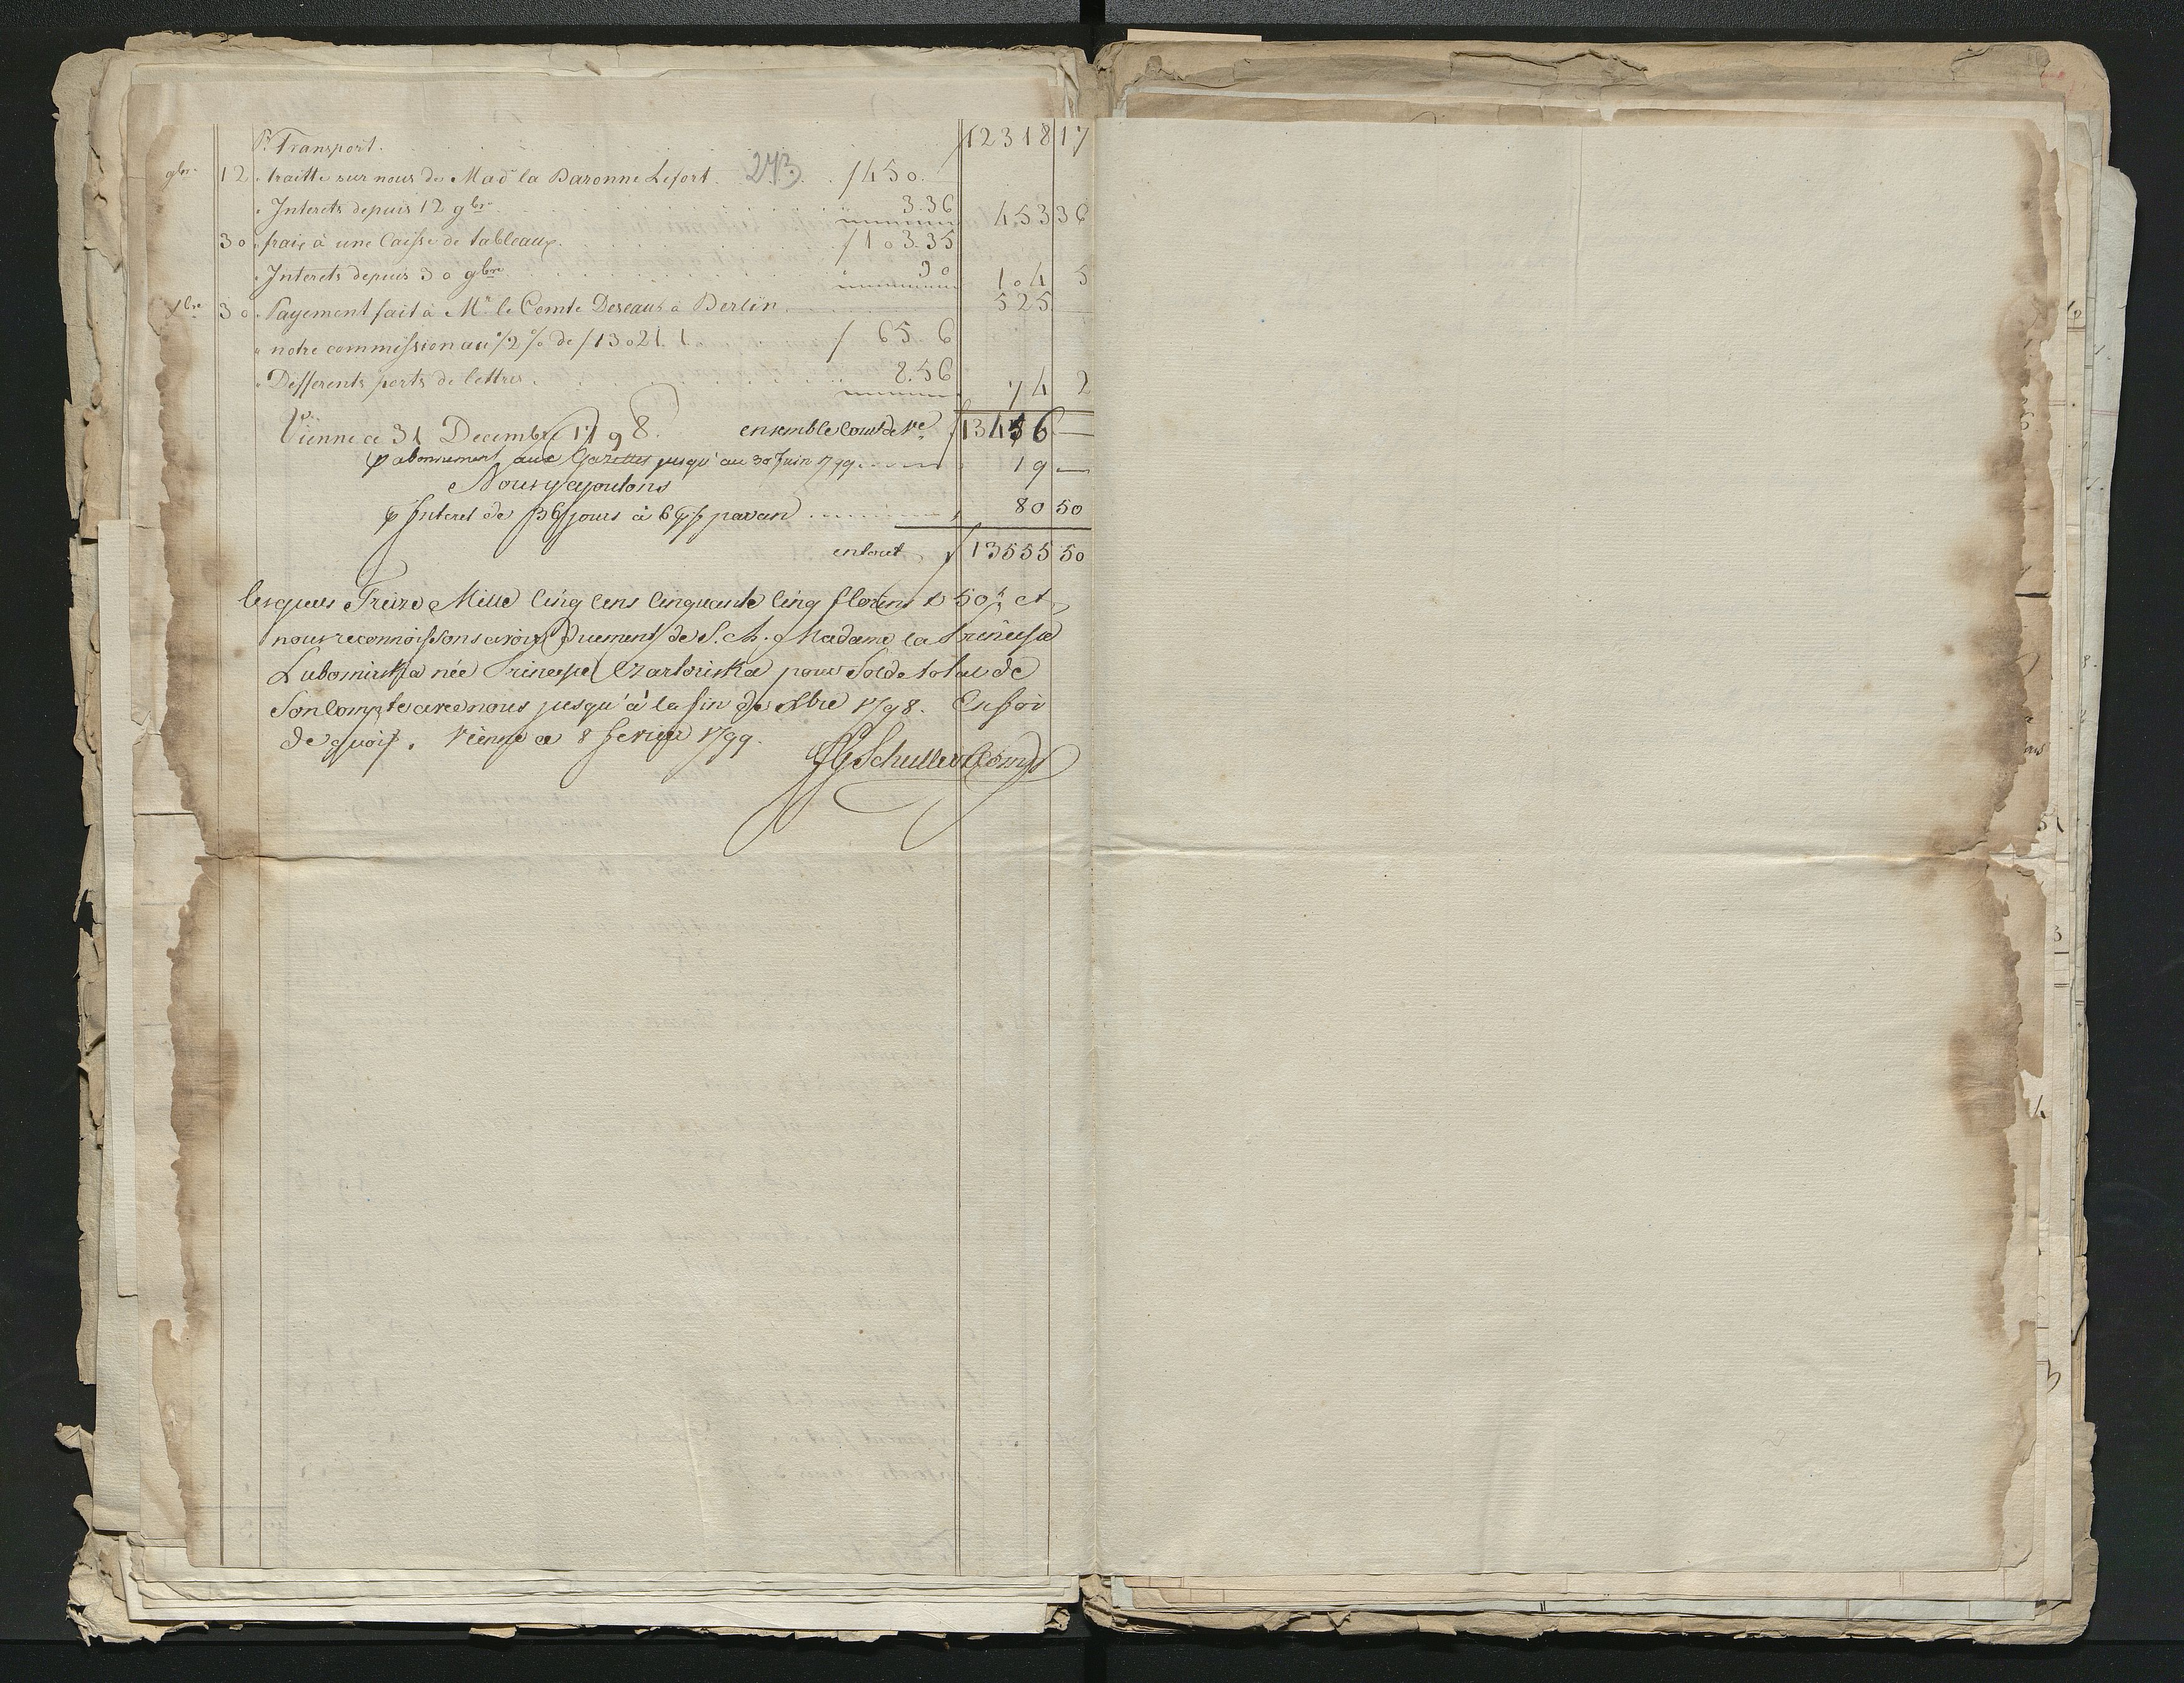 Pr. Transport. f 12318 17
9br. 12 . traitte sur nous de Made la Baronne Lefort. 273 f 450.
. Interets depuis 12 9bre 3.36 453 36
30 . frais à une Caisse de tableaux. f 103.35
. Interets depuis 30 9bre 30 104 5
Xbre 30 . Payement fait à Mr. le Comte Deseaus à Berlin 525 —
" notre commission au ½ % de f 13021.1. f 65.6
" Differents ports de lettres. 8.56 74 2
Vienne ce 31 Decembre 1798. ensemble Cour de Ve. f 13456 —
p abonnement aux Gazettes jusqu'au 30 Juin 1799. 19 —
Nous y ajoutons
p Interet de 36 jours à 6 p% par an 80 50
en tout f 13555 50
lesquels Treize Mille Cinq Cens Cinquante Cinq florins & 50 x. ct
nous reconnoissons avoir duement de S. A. Madame la Princesse
Lubomirska née Princesse Czartoriska pour Solde total de
Son Compte avec nous jusqu'à la fin de Xbre 1798. En foi
de quoi. Vienne ce 8 fevrier 1799.
JG Schuller & Comp